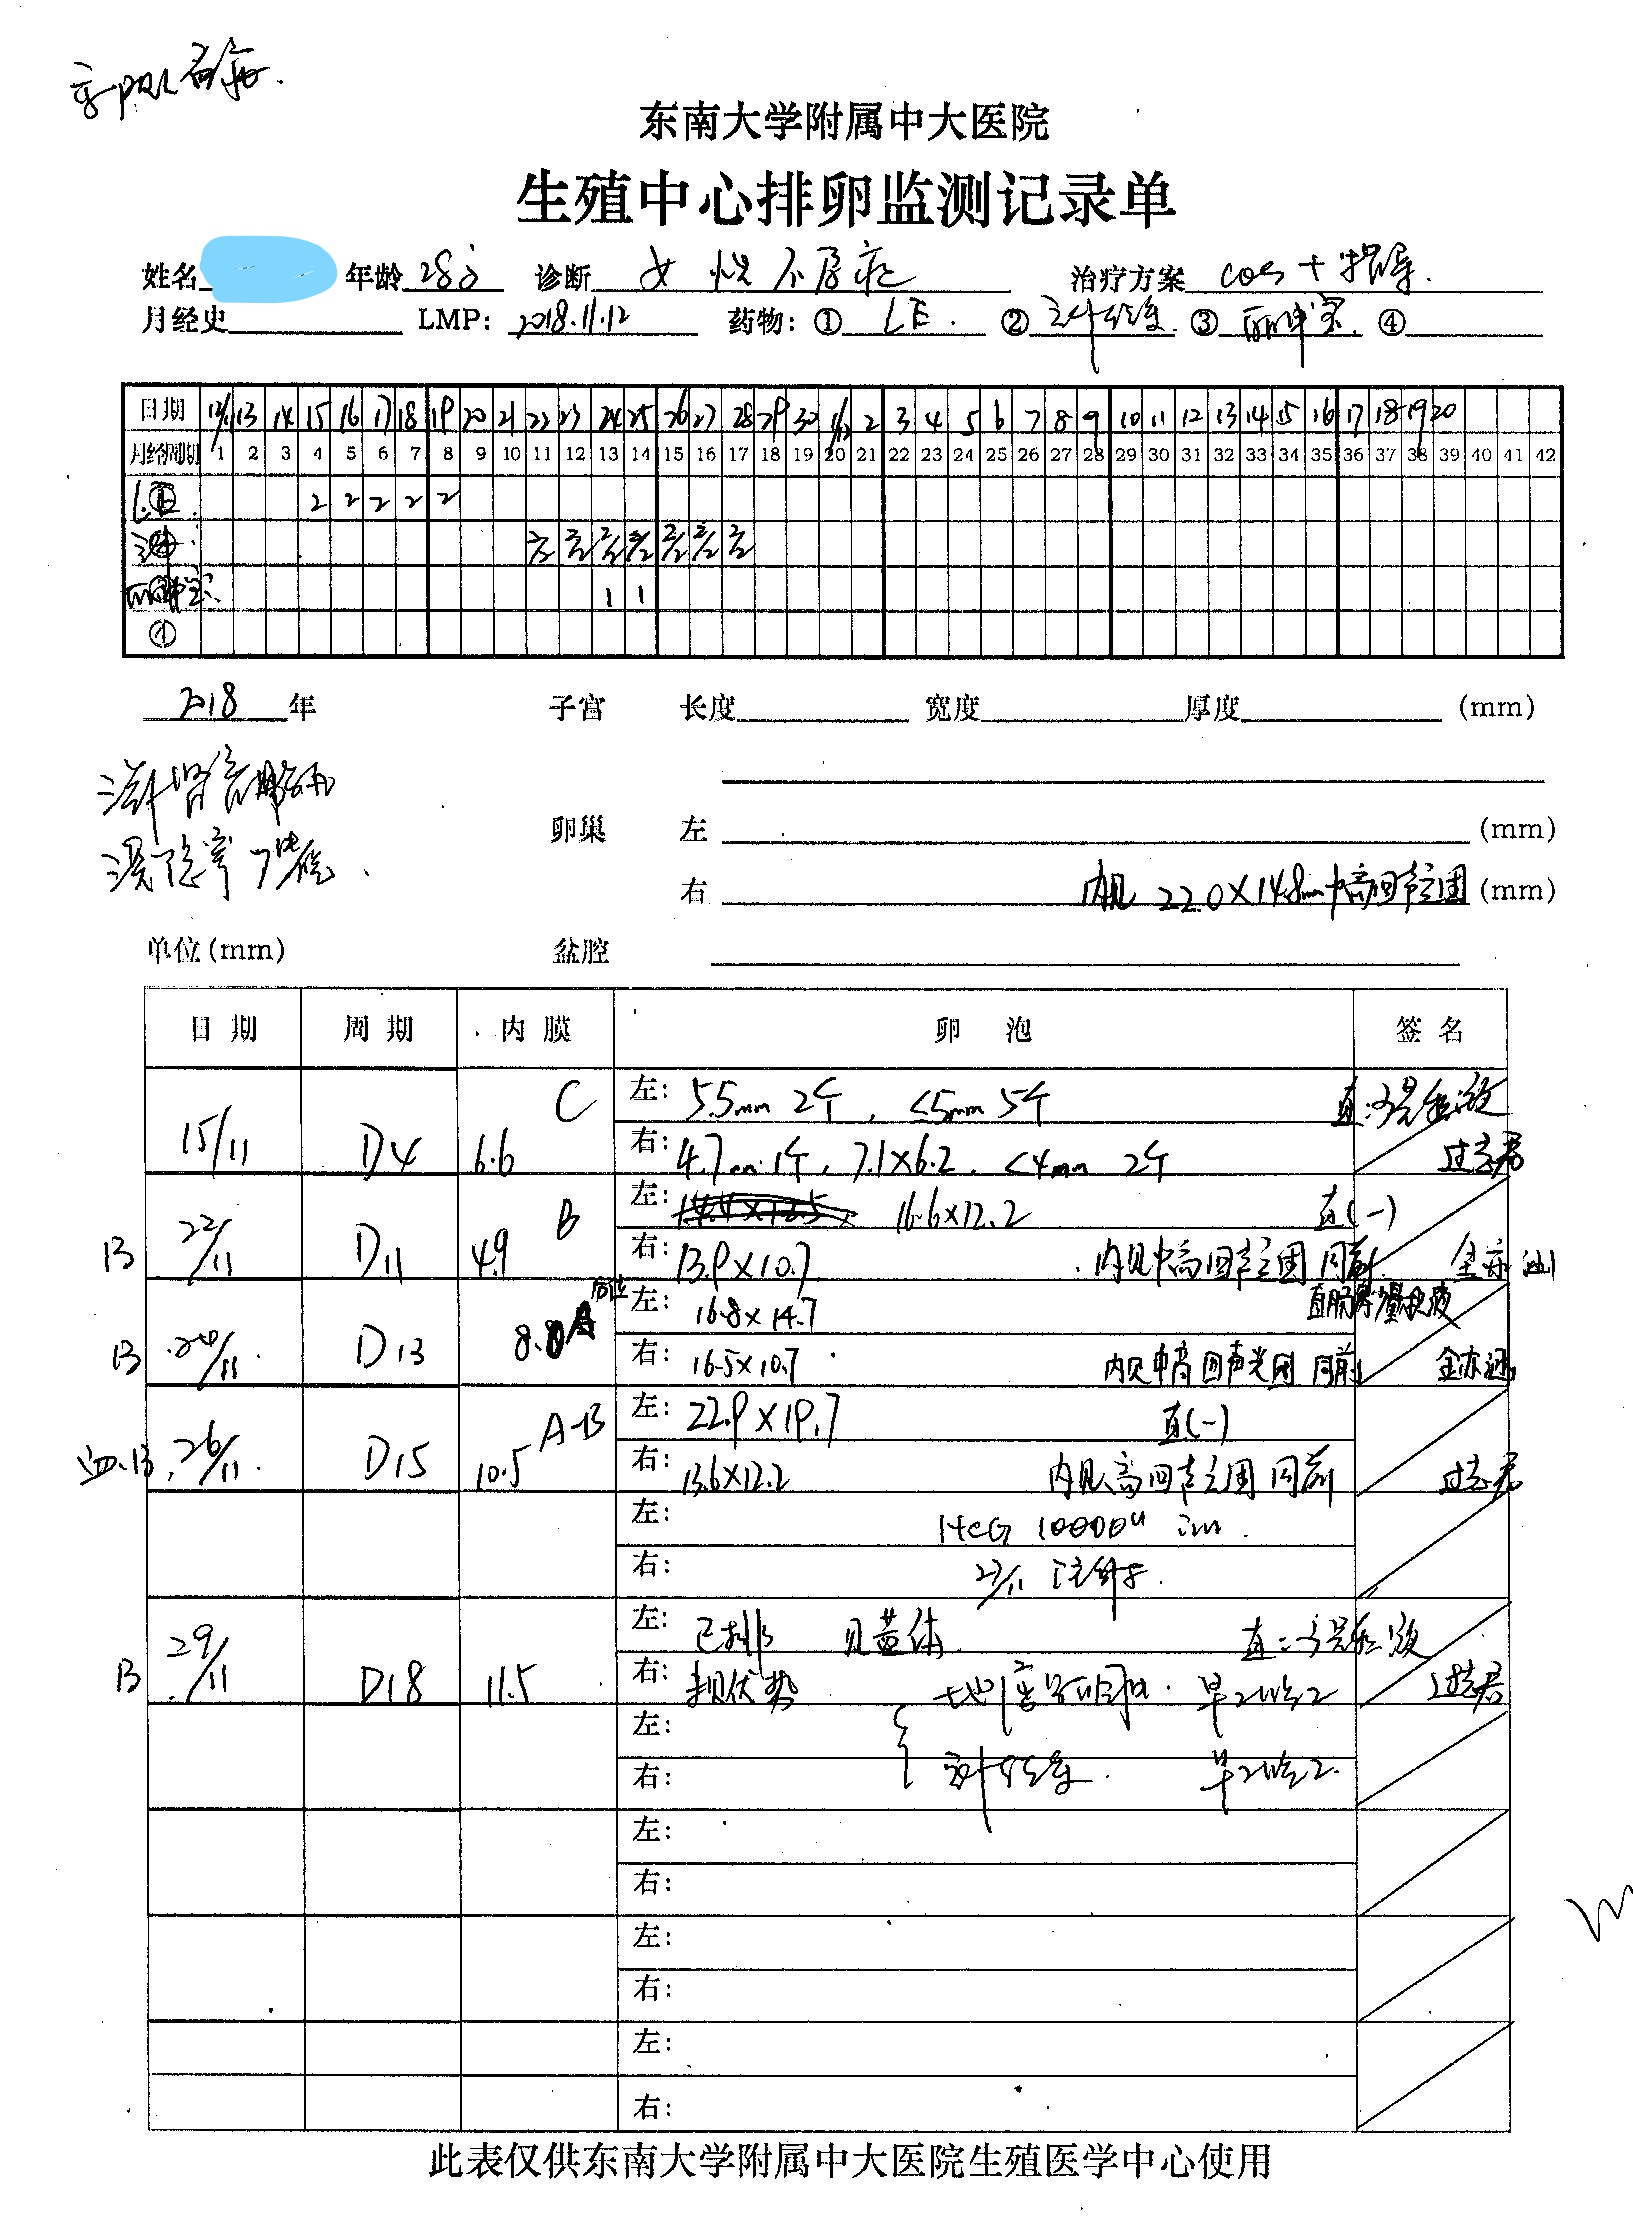 东南大学附属中大医院
生殖中心排卵监测记录单
姓名 年龄 28岁 诊断 女性不孕症 治疗方案 COS+指导.
月经史 LMP: 2018.11.12 药物: ① LE. ② ③ 丽申宝. ④
日期 12/11 13 14 15 16 17 18 19 20 21 22 23 24 25 26 27 28 29 30 1/12 2 3 4 5 6 7 8 9 10 11 12 13 14 15 16 17 18 19 20
月经周期 1 2 3 4 5 6 7 8 9 10 11 12 13 14 15 16 17 18 19 20 21 22 23 24 25 26 27 28 29 30 31 32 33 34 35 36 37 38 39 40 41 42
① LE. 2 2 2 2 2
② 2/2 2/2 2/2 2/2 2/2 2/2 2/2
③ 丽申宝: 1 1
④
2018 年 子宫 长度 宽度 厚度 (mm)
卵巢 左 (mm)
右 内见 22.0×14.8mm中高回声光团 (mm)
单位(mm) 盆腔
日期 周期 内膜 卵泡 签名
15/11 D4 6.6 C 左: 5.5mm 2个, ≤5mm 5个 直:
右: 4.7mm 1个, 7.1×6.2. <4mm 2个
22/11 D11 4.9 B 左: 14.4×12.5 16.6×12.2 直(-)
B 右: 13.9×10.7 内见中高回声光团 同前.
24/11. D13 8.8 A 左: 16.8×14.7
B 右: 16.5×10.7 内见中高回声光团 同前
26/11. D15 10.5 A-B 左: 22.9×19.7 直(-)
右: 13.6×12.2 内见高回声光团 同前
左: HCG 10000u im.
右: 27/11
29/11 D18 11.5 左: 已排 见黄体. 直:
B 右: 未见优势 地屈孕酮 早2晚2
左: 早2晚2.
右:
左:
右:
左:
右:
左:
右:
此表仅供东南大学附属中大医院生殖医学中心使用